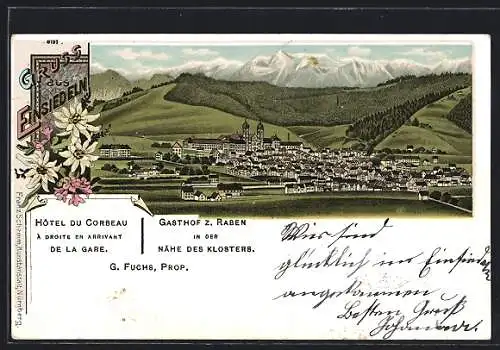 6191
Gruss
aus
Einsiedeln
HÔTEL DU CORBEAU
À DROITE EN ARRIVANT
DE LA GARE.
GASTHOF Z. RABEN
IN DER
NÄHE DES KLOSTERS.
G. FUCHS, PROP.
Wir sind
glücklich in Einsiedeln
angekommen
Besten Gruss
Johanna.
Franz Schemm, Kunstanstalt, Nürnberg.